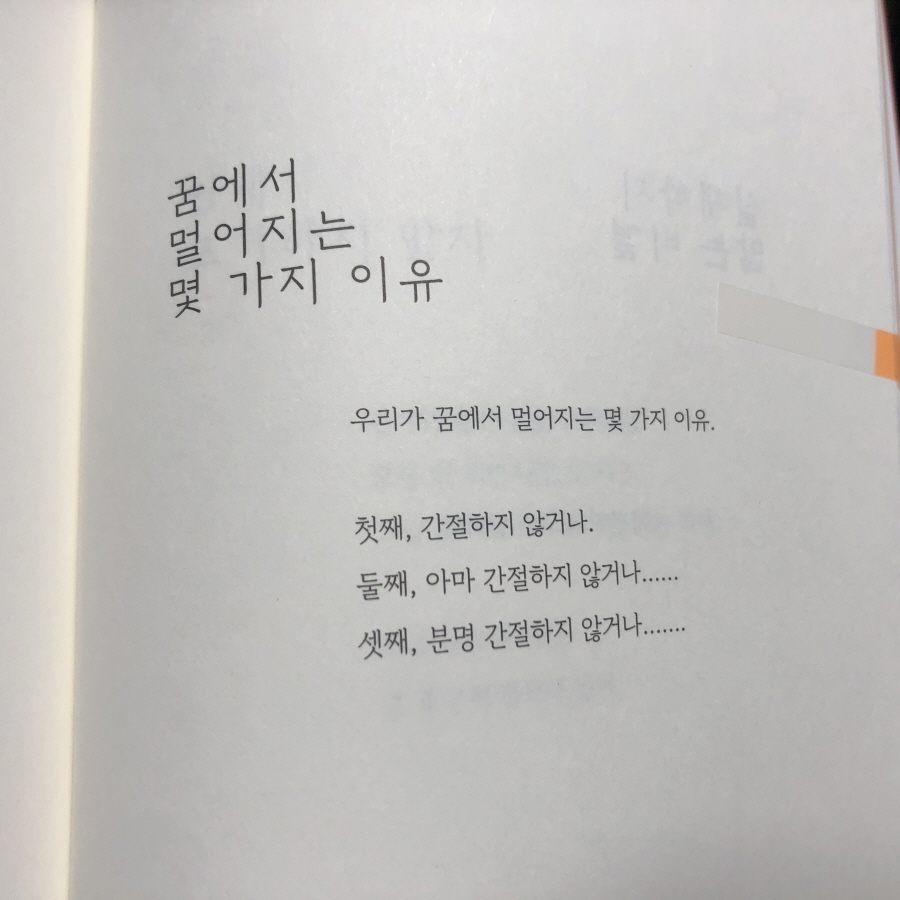 꿈에서
멀어지는
몇 가지 이유
우리가 꿈에서 멀어지는 몇 가지 이유.
첫째, 간절하지 않거나.
둘째, 아마 간절하지 않거나......
셋째, 분명 간절하지 않거나.......